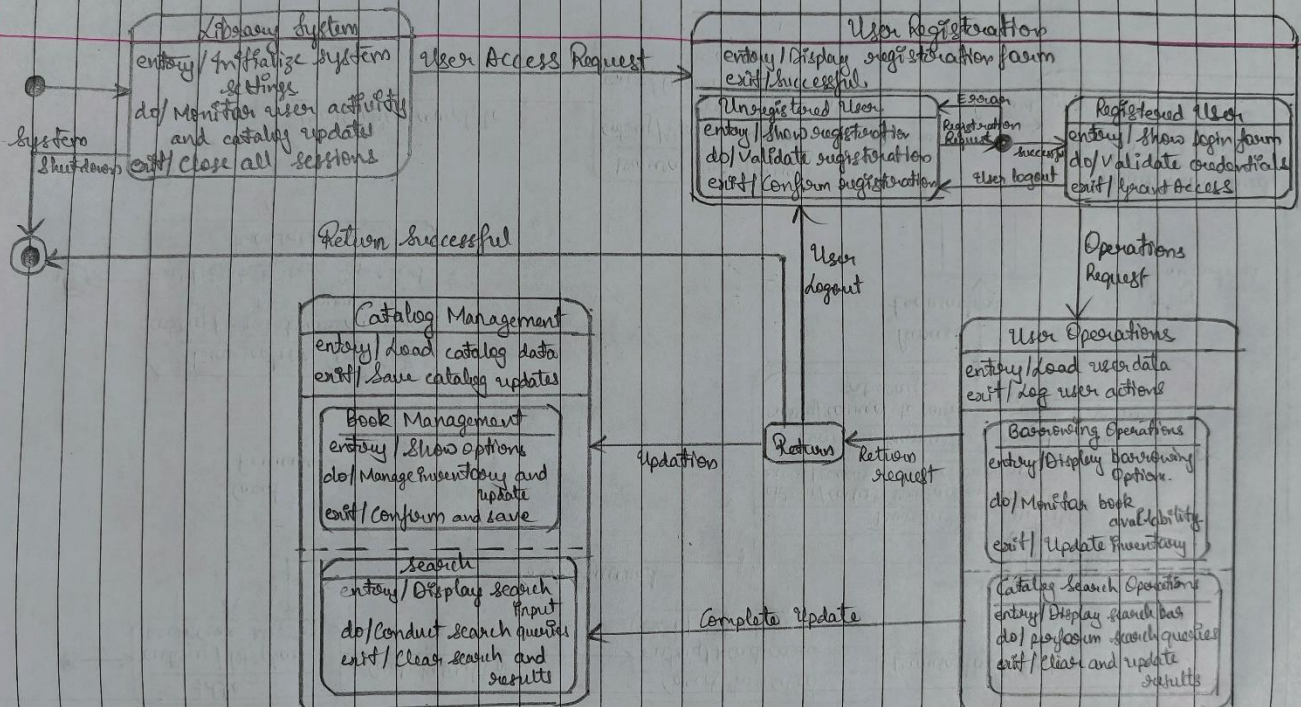 Library System
entry/Initialize System
settings
do/Monitor user activity
and catalog updates
exit/Close all sessions
System
Shutdown
User Access Request
User Registration
entry/Display registration form
exit/Successful
Unregistered User
entry/Show registration
do/Validate registration
exit/Confirm registration
Error
Registration
Request
Successful
User logout
Registered User
entry/Show login form
do/Validate credentials
exit/Grant Access
Return Successful
User
Logout
Operations
Request
Catalog Management
entry/Load catalog data
exit/Save catalog updates
Book Management
entry/Show options
do/Manage inventory and
update
exit/Confirm and save
Search
entry/Display search
input
do/Conduct search queries
exit/Clear search and
results
Updation
Return
Return
request
Complete Update
User Operations
entry/Load user data
exit/Log user actions
Borrowing Operations
entry/Display borrowing
Option.
do/Monitor book
availability
exit/Update inventory
Catalog Search Operations
entry/Display search bar
do/perform search queries
exit/Clear and update
results